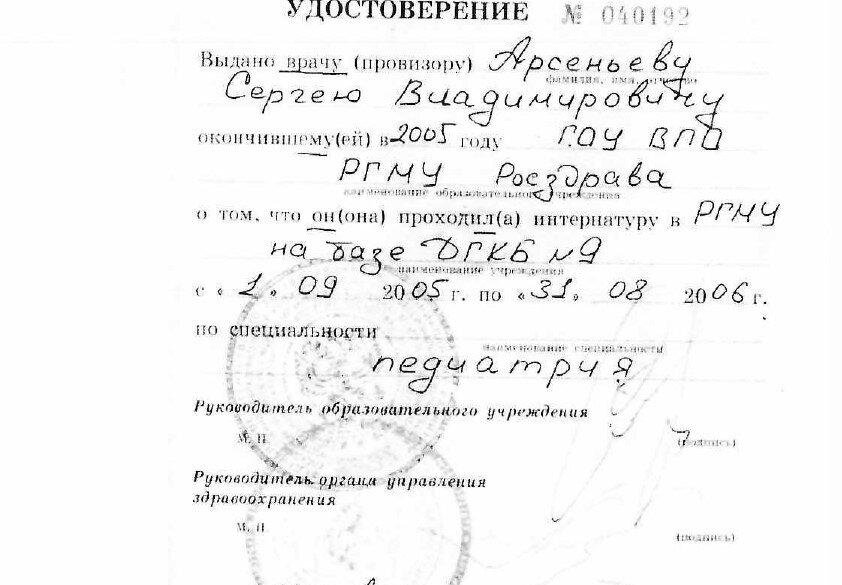 УДОСТОВЕРЕНИЕ № 040192
Выдано врачу (провизору) Арсеньеву
фамилия, имя, отчество
Сергею Владимировичу
окончившему(ей) в 2005 году ГОУ ВПО
РГМУ Росздрава
наименование образовательного учреждения
о том, что он(она) проходил(а) интернатуру в РГМУ
на базе ДГКБ №9
наименование учреждения
с «1» 09 2005 г. по «31» 08 2006 г.
по специальности
наименование специальности
педиатрия
Руководитель образовательного учреждения
М. П.
(подпись)
Руководитель органа управления
здравоохранения
М. П.
(подпись)